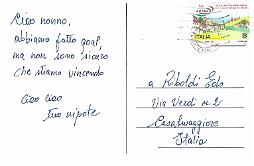 Ciao nonno,
abbiamo fatto goal,
ma non sono sicuro
che stiamo vincendo
Ciao ciao
tuo nipote
ITALIA
B
a Riboldi Edo
Via Verdi n. 2
Casalmaggiore
Italia